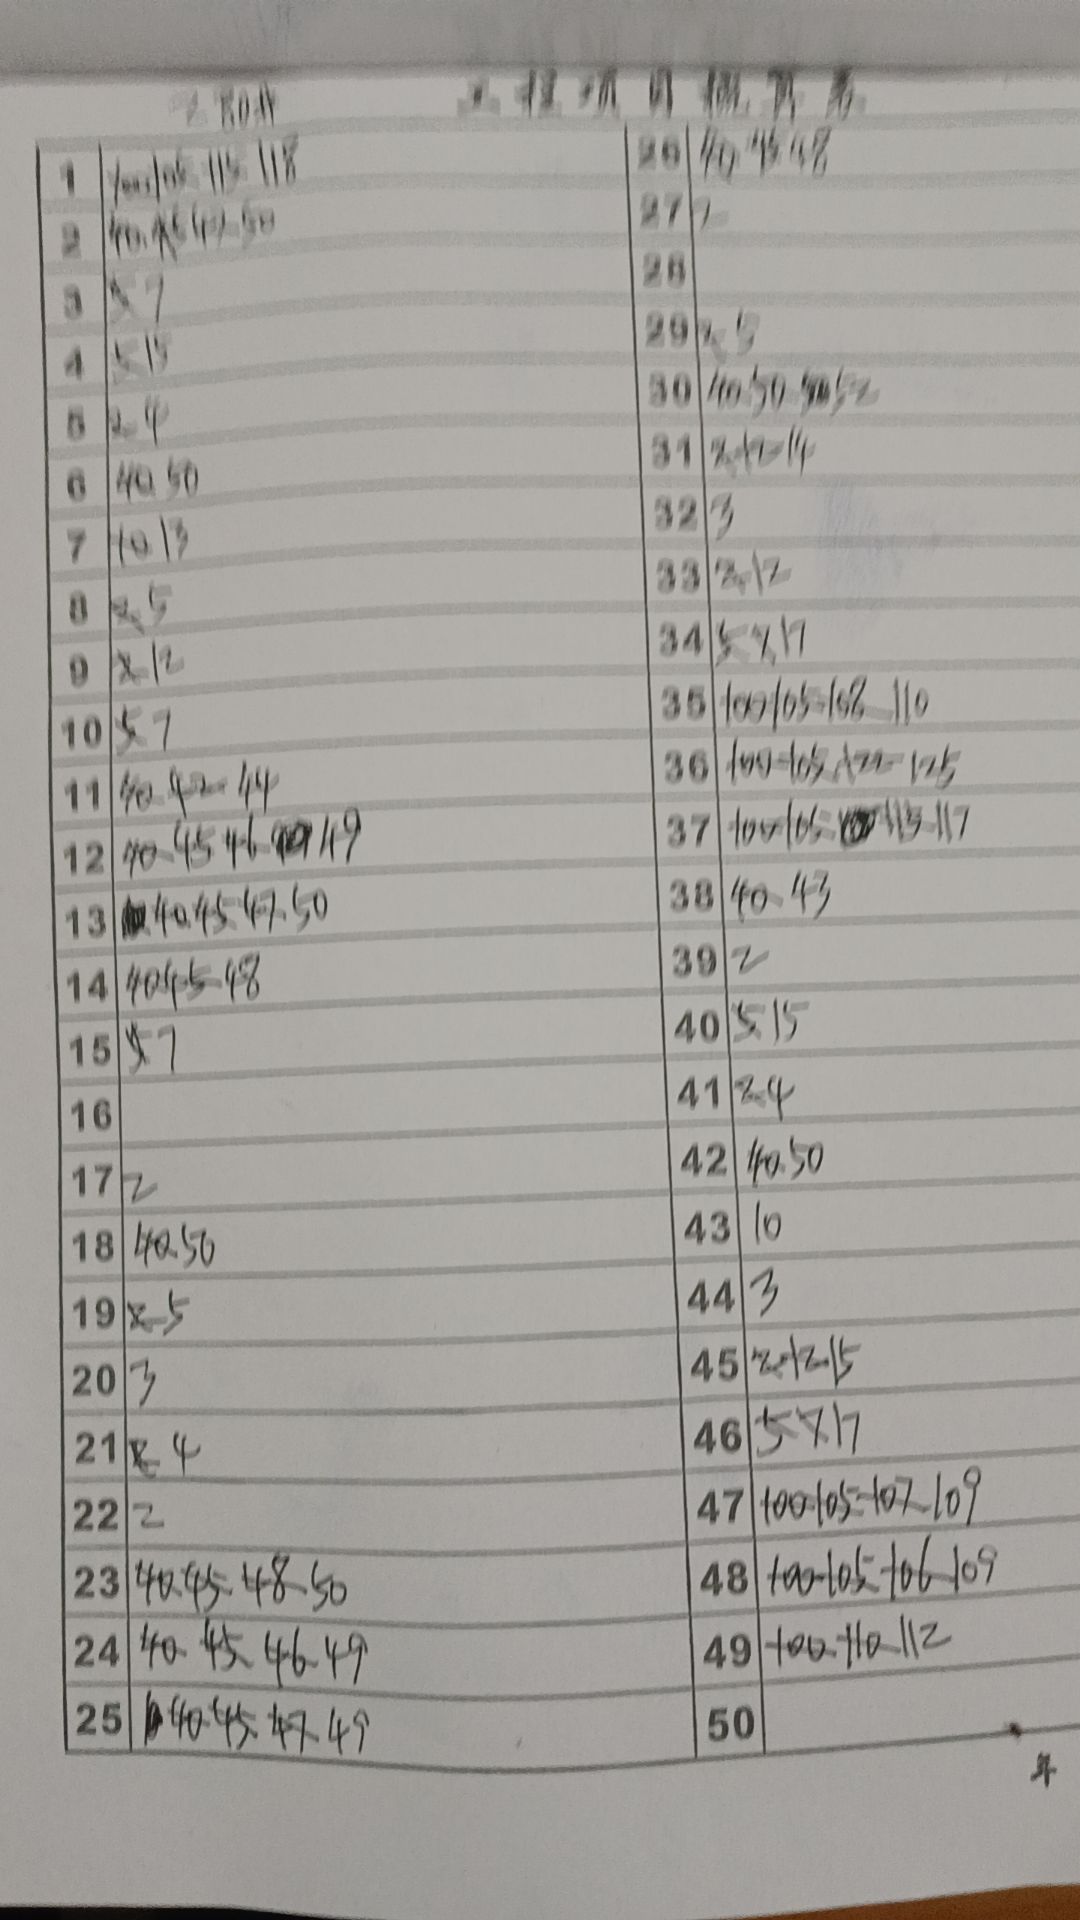 工程项目概算表
1 100 105 115 118
2 40.45 47 50
3 5 7
4 5 15
5 2 4
6 40 50
7 10.13
8 2.5
9 2 12
10 5 7
11 40 42 44
12 40 45 46 49
13 40.45 47.50
14 40 45 48
15 5 7
16
17 2
18 40.50
19 2 5
20 3
21 2 4
22 2
23 40.45 48 50
24 40 45 46 49
25 40 45 47 49
26 40 45 48
27 2
28
29 2 5
30 40.50 52
31 2 12 14
32 3
33 2.12
34 5 7 17
35 100 105 108 110
36 100 105 122 125
37 100 105 113 117
38 40 43
39 2
40 5 15
41 2 4
42 40.50
43 10
44 3
45 2 12 15
46 5 7 17
47 100 105 107 109
48 100 105 106 109
49 100 110 112
50
年